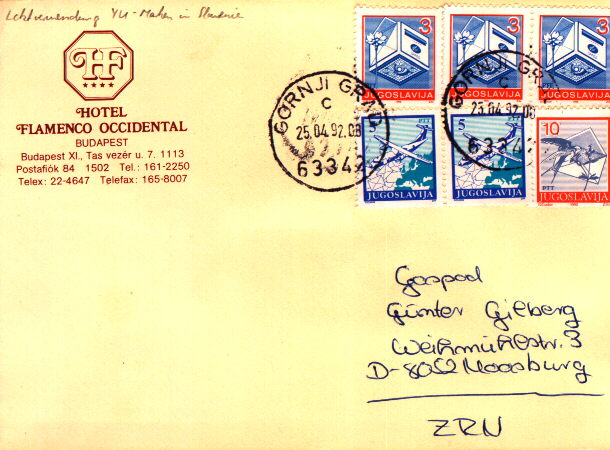 Letztverwendung YU-Marken in Slowenien
HF
HOTEL
FLAMENCO OCCIDENTAL
BUDAPEST
Budapest XI., Tas vezér u. 7. 1113
Postafiók 84 1502 Tel.: 161-2250
Telex: 22-4647 Telefax: 165-8007
3
JUGOSLAVIJA
3
JUGOSLAVIJA
3
JUGOSLAVIJA
5
PTT
JUGOSLAVIJA
5
PTT
JUGOSLAVIJA
10
PTT
JUGOSLAVIJA
GORNJI GRAD
C
25.04.92.08
63342
GORNJI GRAD
C
25.04.92.08
63342
Gospod
Günter Gilberg
Weihmühlstr. 3
D-8052 Moosburg
ZRN